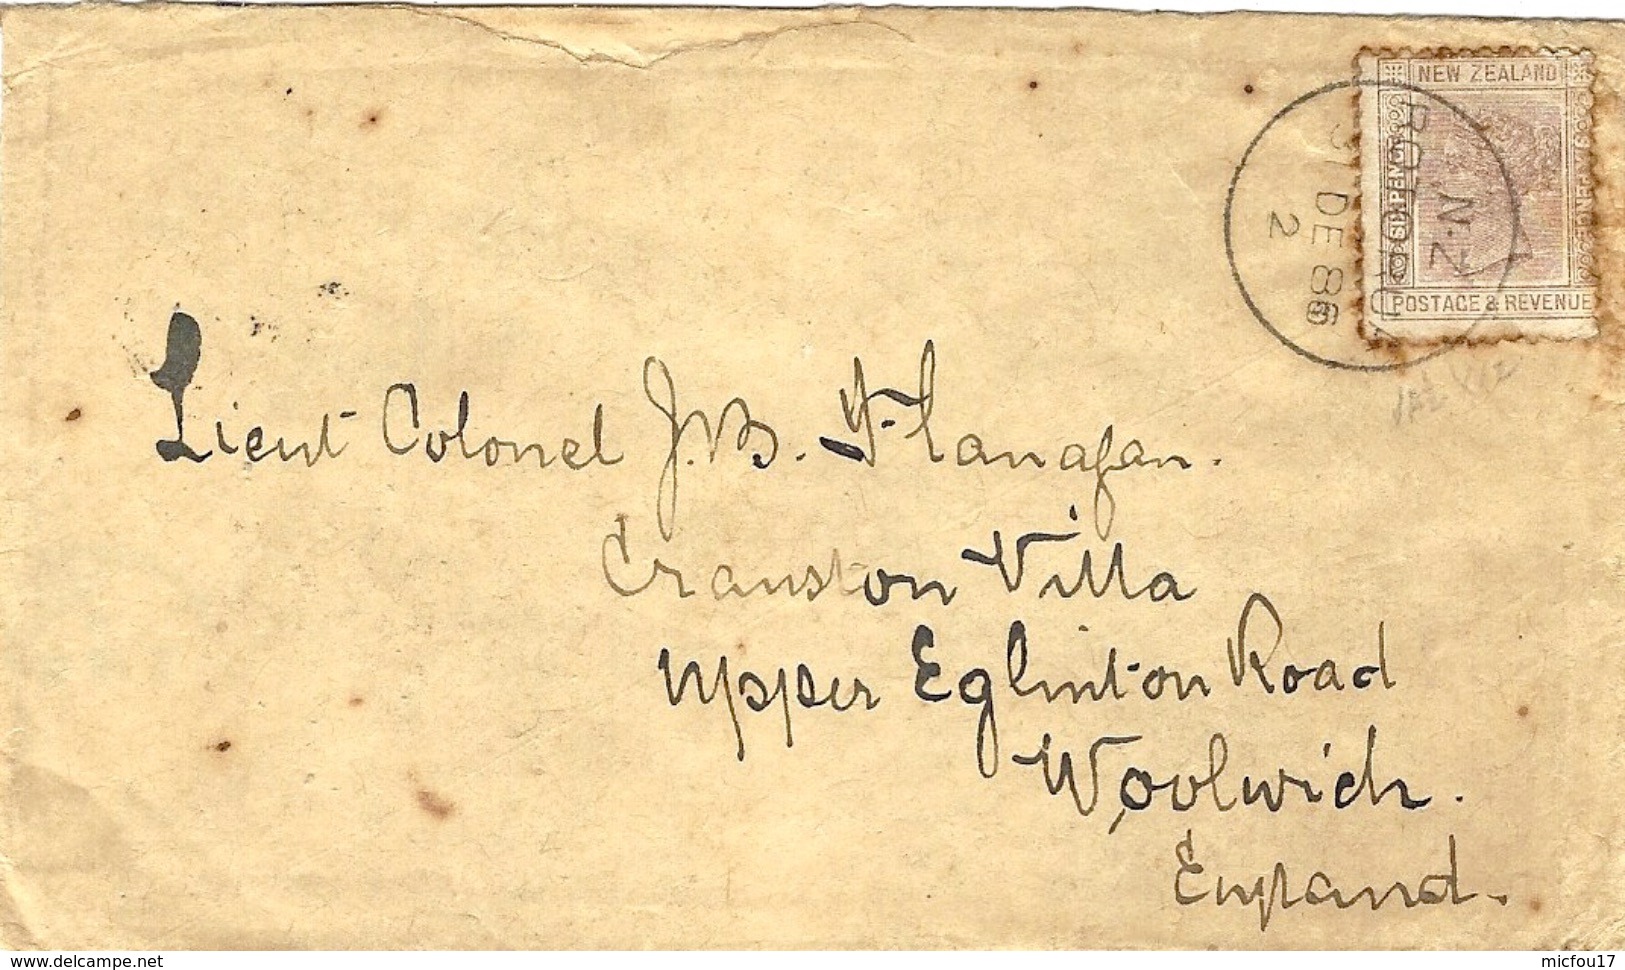 NEW ZEALAND
SIX PENCE
SIX PENCE
POSTAGE & REVENUE
N.Z
31 DE 86
2
Lieut Colonel J. B. Flanagan.
Cranston Villa
Upper Eglinton Road
Woolwich.
England.
www.delcampe.net
micfou17